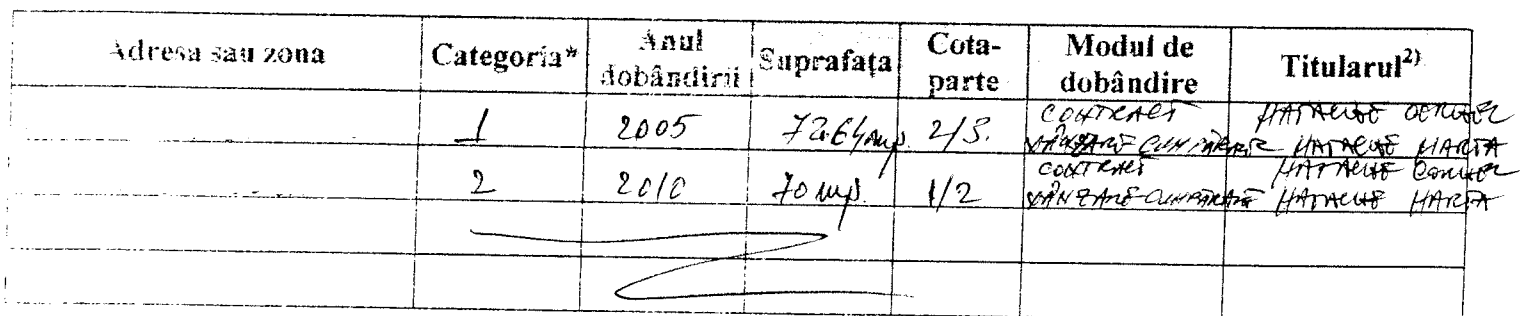 Adresa sau zona Categoria* Anul dobândirii Suprafața Cota-parte Modul de dobândire Titularul2)
1 2005 72.64mp. 2/3. CONTRACT VÂNZARE-CUMPĂRARE MATACHE MATACHE MARTA
2 2010 70 mp. 1/2 CONTRACT VÂNZARE-CUMPĂRARE MATACHE MATACHE MARTA